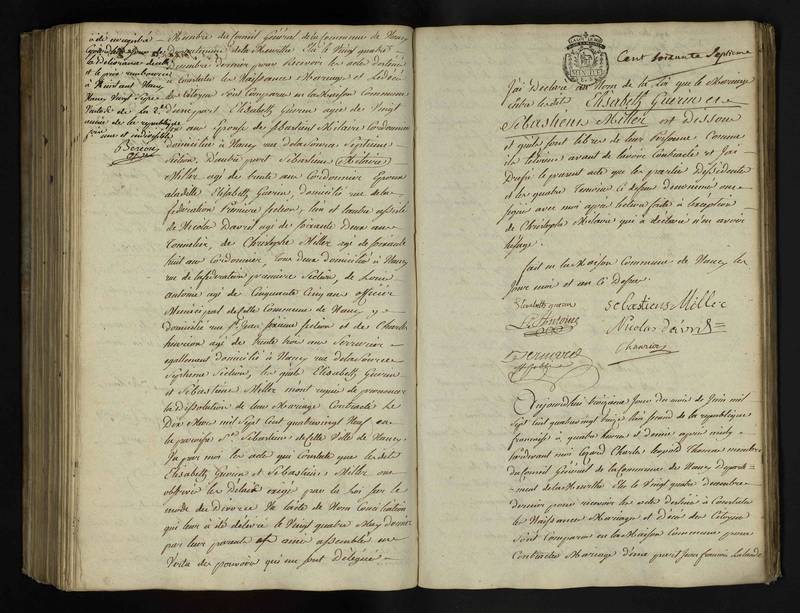 a été enregistré
et le prix remboursé
Vingt Sept
année de la république
une et indivisible
Membre du Conseil Général de la Commune de Nancy
Departement de la Meurthe Elu le Vingt quatre
Décembre dernier pour Recevoir les acte destiné
a Constater les Naissances Mariage et Décès
le Citoyen Sont Comparu en la Maison Commune
D'une part Elisabeth Guerin agée de Vingt
ans Epouse de Sébastien Cordonnier
domicilié à Nancy rue de la Septième
Section, D'autre part Sébastien
Miller agé de trente ans Cordonnier Epoux
de la dite Elisabeth Guerin, domicilié rue de la
fédération Première Section, l'un et l'autre assisté
de Nicolas Davril agé de soixante Deux ans
Tonnelier, de Christophe Miller agé de soixante
huit ans Cordonnier, tous deux domicilié à Nancy
rue de la fédération première Section, de Louis
antoine agé de Cinquante Cinq ans officier
Municipal de cette Commune de Nancy y
domicilié rue St Jean Section et de Charles
agé de trente trois ans Serrurier
egallement domicilié à Nancy rue de la
Septième Section, les quels Elisabeth Guerin
et Sébastien Miller m'ont requis de prononcer
la dissolution de leur Mariage Contracté le
Dix Mil Sept Cent quatre vingt Neuf en
la paroisse St Sébastien de Cette Ville de Nancy.
Vu par moi les acte qui Constate que les dit
Elisabeth Guerin et Sébastien Miller ont
observé les délais exigé par la loi sur le
mode du Divorce Vu l'acte de Non Conciliation
qui leur a été délivré le Vingt quatre May dernier
par leur parents et amis assemblés en
Vertu du pouvoir qui me sont délégués
Cent soixante Septieme
J'ai Déclaré au Nom de la Loi que le Mariage
entre les dit Elisabeth Guerin et
Sébastiens Miller est dissous
et qu'ils sont libres de leur Personne Comme
ils l'étoient avant de l'avoir Contracté et J'ai
Dressé le présent acte que les parties
et les quatre Temoins Ci dessus dénommé ont
signé avec moi après lecture faite à l'exception
de Christophe qui a déclaré n'en avoir
l'usage.
fait en la Maison Commune de Nancy les
Jour mois et an Ci Dessus.
Elisabeth guerin
sebastiens Miller
L. Antoine
Nicolas davril
Aujourd'hui troisieme Jour du mois de Juin mil
Sept Cent quatre vingt treize l'an second de la republique
francaise à quatre heures et demie après midy
Pardevant moi Charles léopold Thomas membre
du Conseil Général de la Commune de Nancy départe
ment de la Meurthe Elu le Vingt quatre decembre
dernier pour recevoir les acte destiné à Constater
les Naissance Mariage et décès des Citoyens
Sont Comparu en la Maison Commune pour
Contracter Mariage d'une part Jean francois